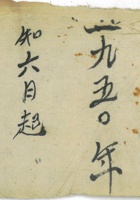 一九五〇年
和六月起